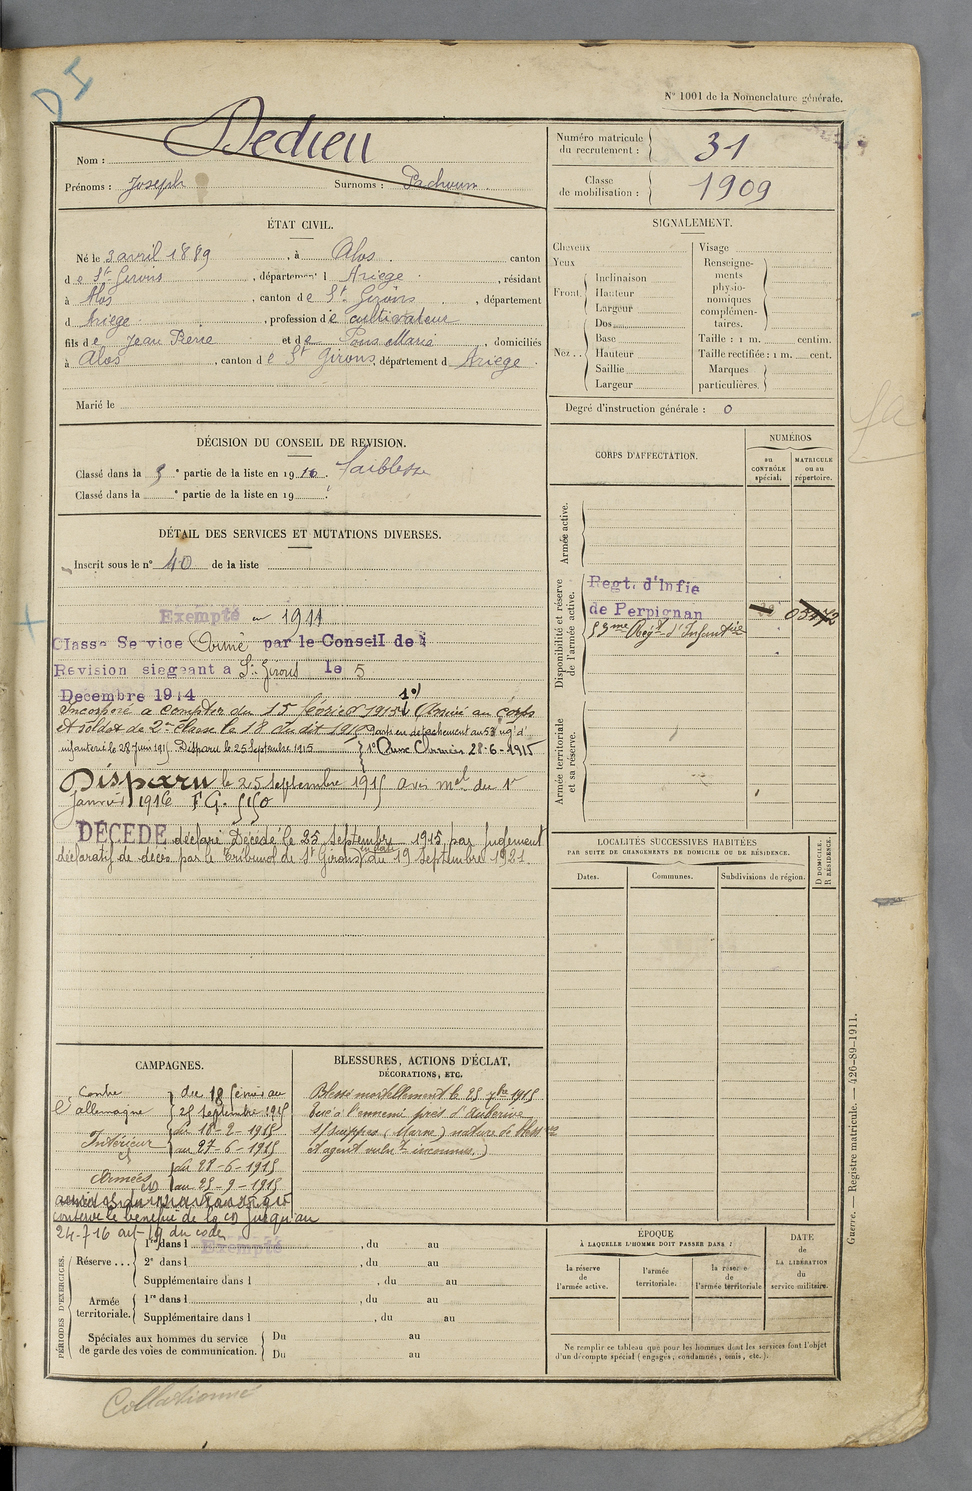 DI
N° 1001 de la Nomenclature générale.
Nom : Dedieu
Prénoms : Joseph Surnoms : Pachoum
Numéro matricule du recrutement : 31
Classe de mobilisation : 1909
ÉTAT CIVIL.
Né le 3 avril 1889, à Alos, canton
de St Girons, département d Ariege, résidant
à Alos, canton de St Girons, département
d Ariege, profession de cultivateur
fils de Jean Pierre et de Pons Marie, domiciliés
à Alos, canton de St Girons, département d Ariege
Marié le
SIGNALEMENT.
Cheveux
Yeux
Front. Inclinaison
Hauteur
Largeur
Nez .. Dos
Base
Hauteur
Saillie
Largeur
Visage
Renseignements physionomiques complémentaires.
Taille : 1 m. centim.
Taille rectifiée : 1 m. cent.
Marques particulières.
Degré d'instruction générale : 0
DÉCISION DU CONSEIL DE REVISION.
Classé dans la 5e partie de la liste en 1910. Faiblesse
Classé dans la e partie de la liste en 19
DÉTAIL DES SERVICES ET MUTATIONS DIVERSES.
Inscrit sous le n° 40 de la liste
Exempté en 1911
Classe Service Armé par le Conseil de
Revision siegeant a St Girons le 5
Decembre 1914
Incorporé à compter du 15 février 1915 Arrivé au corps
et soldat de 2me classe le 18 du dit 1915 Parti en detachement au 53 rég d'
infanterie le 28 Juin 1915. Disparu le 25 septembre 1915 1° Aux Armées 28-6-1915
Disparu le 25 septembre 1915 avis mel du 1er
Janvier 1916 F.G. 5150
DÉCÉDÉ déclaré Décédé le 25 septembre 1915 par jugement
déclaratif de décès par le tribunal de St Girons en date du 19 septembre 1921.
CORPS D'AFFECTATION.
NUMÉROS
au CONTRÔLE spécial.
MATRICULE ou au répertoire.
Armée active.
Disponibilité et réserve de l'armée active.
Regt. d'Infie
de Perpignan
53me Regt d'Infanterie
Armée territoriale et sa réserve.
LOCALITÉS SUCCESSIVES HABITÉES
PAR SUITE DE CHANGEMENTS DE DOMICILE OU DE RÉSIDENCE.
Dates. Communes. Subdivisions de région.
D DOMICILE. R RÉSIDENCE.
CAMPAGNES.
Contre l'allemagne du 18 février au
25 septembre 1915
Intérieur du 18-2-1915
au 27-6-1915
Armées du 28-6-1915
au 25-9-1915
conserve le bénéfice de la CD jusqu'au
24-7-16 art 19 du code
BLESSURES, ACTIONS D'ÉCLAT,
DÉCORATIONS, ETC.
Blessé mortellement le 25 7bre 1915
tué à l'ennemi près d'Auberive
s/suippes (Marne) nature de bless
et agent vulnt inconnus.)
PÉRIODES D'EXERCICES.
Réserve ... 1re dans l Exempté, du au
2e dans l , du au
Supplémentaire dans l , du au
Armée territoriale. 1re dans l , du au
Supplémentaire dans l , du au
Spéciales aux hommes du service de garde des voies de communication. Du au
Du au
ÉPOQUE
À LAQUELLE L'HOMME DOIT PASSER DANS :
la réserve de l'armée active.
l'armée territoriale.
la réserve de l'armée territoriale
DATE de LA LIBÉRATION du service militaire.
Ne remplir ce tableau que pour les hommes dont les services font l'objet
d'un décompte spécial (engagés, condamnés, omis, etc.).
Guerre. — Registre matricule. — 426-89-1911.
Collationné